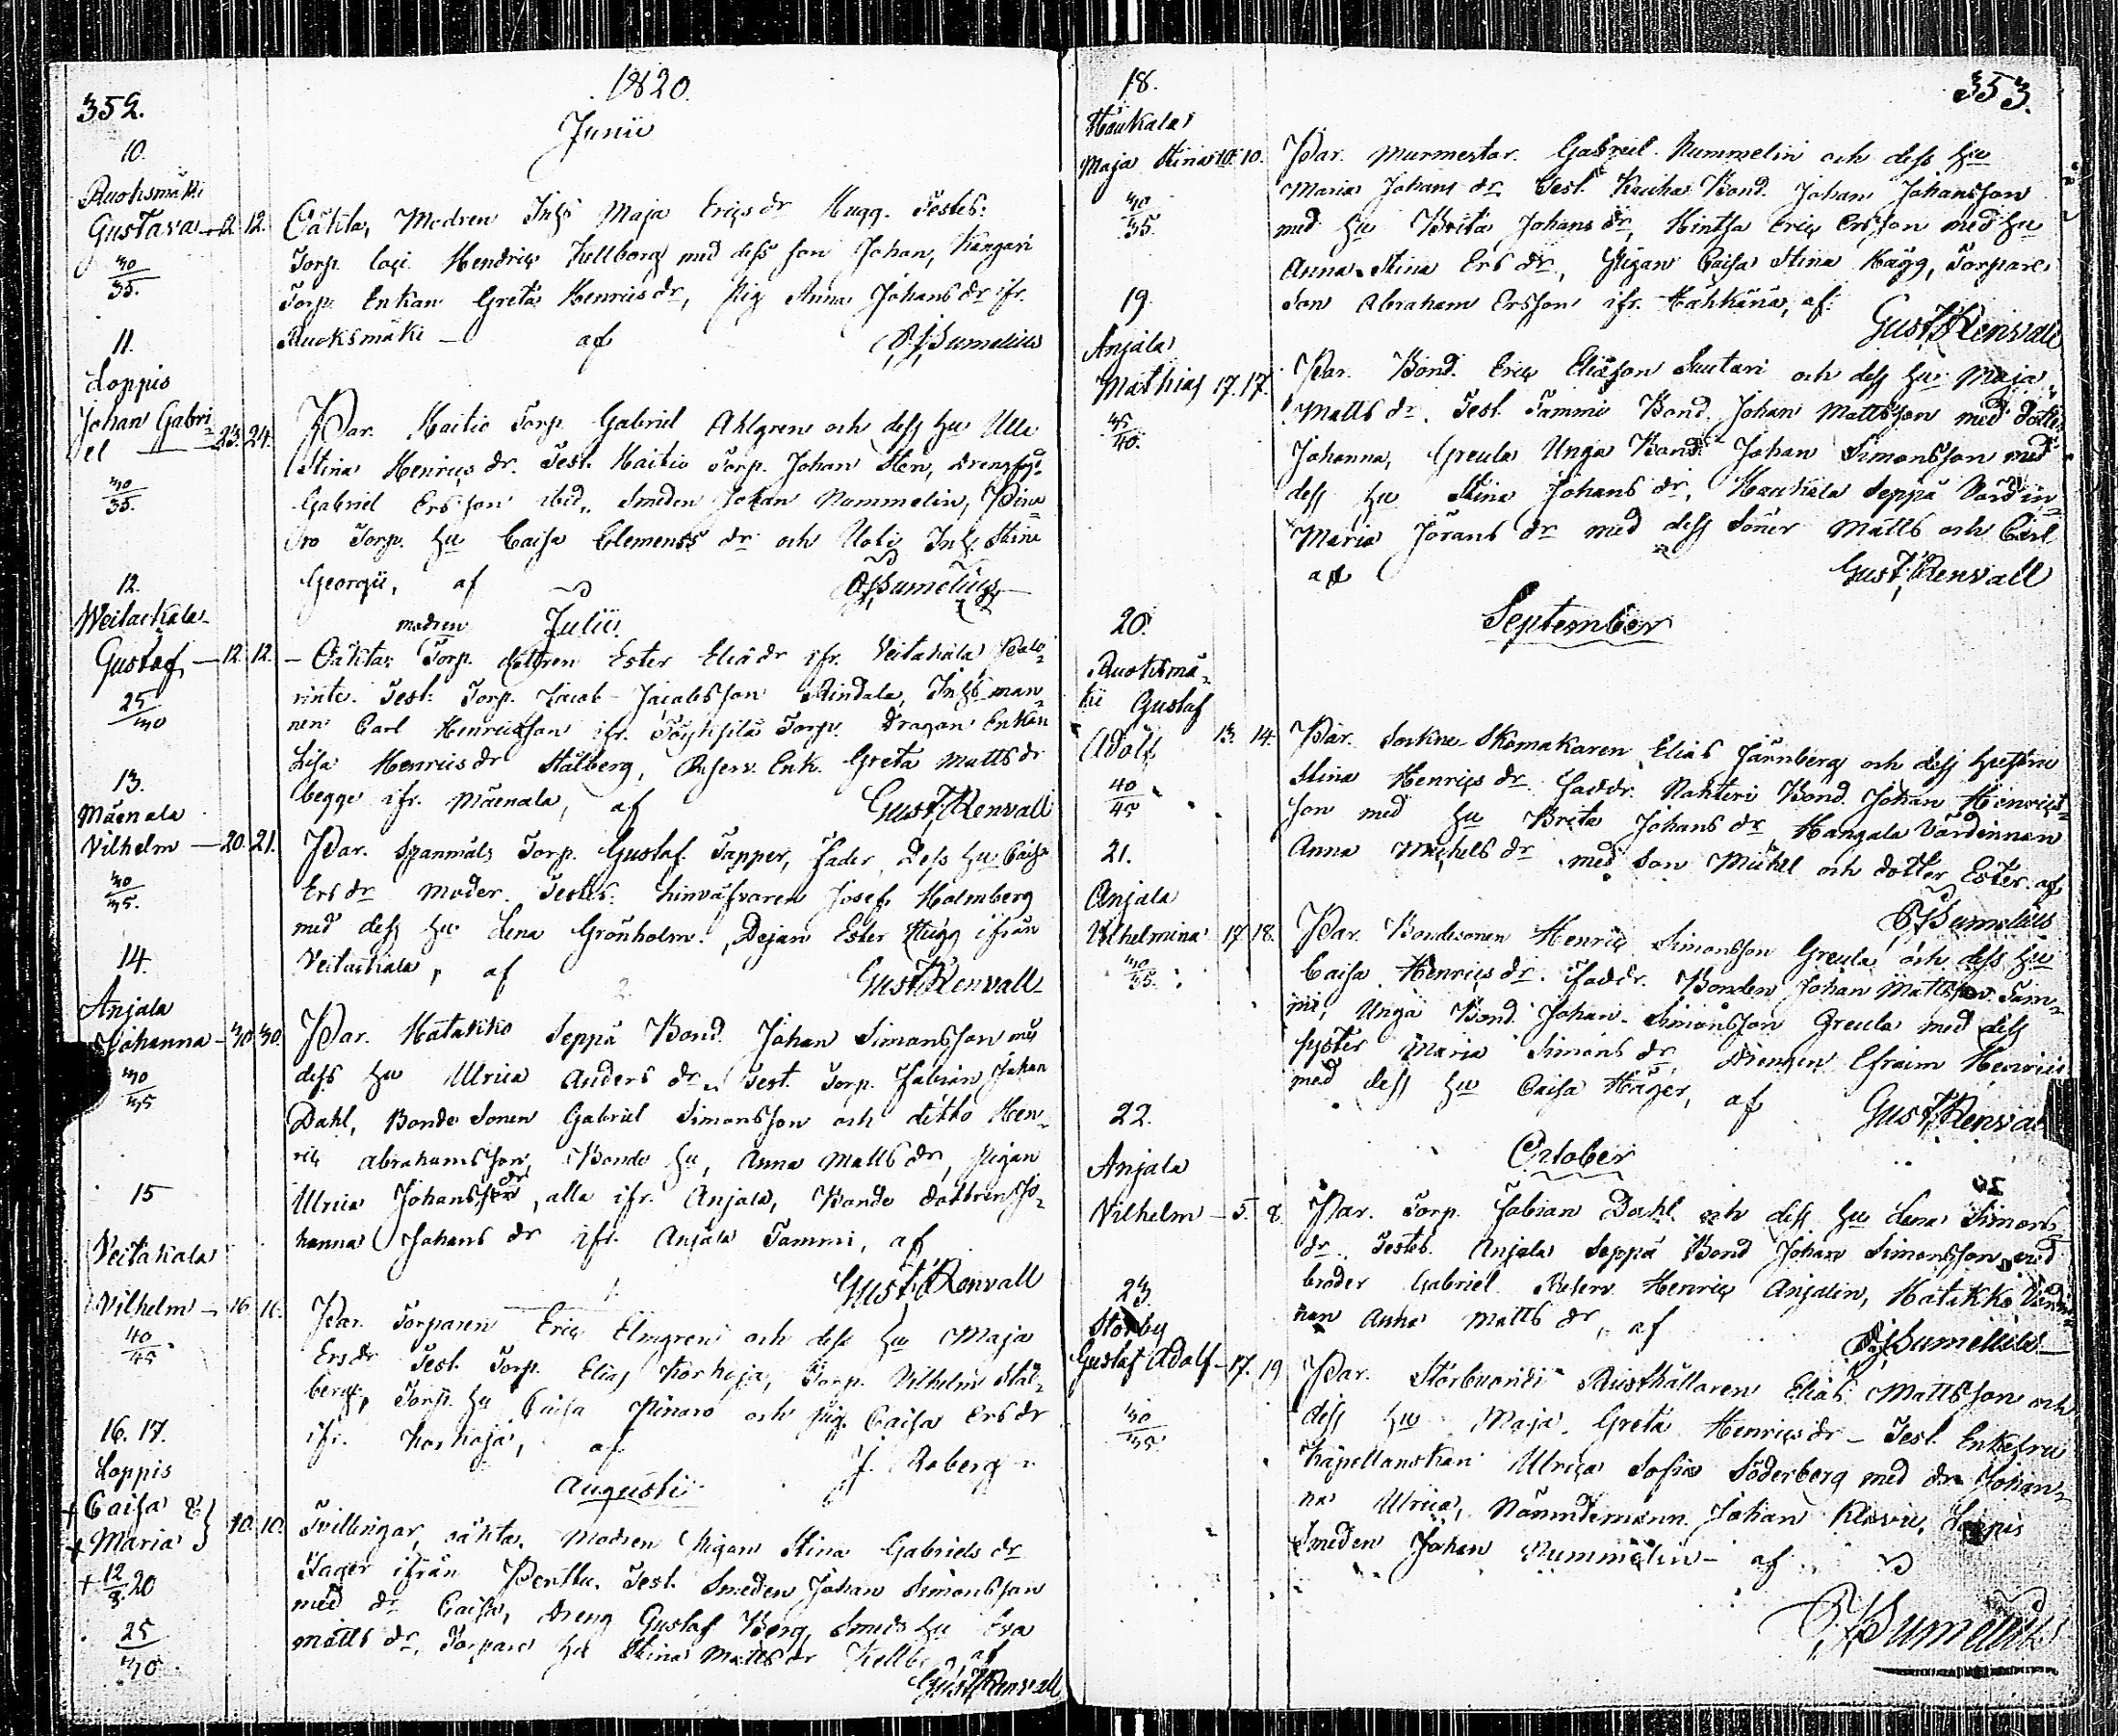 352.
1820.
Junii
10.
Ruohsmäki
Gustava - 12. 12.
30/35.
Oäkta, Modren Inhs Maja Erics dr Hugg. Testes:
Torp. Loci Hendric Kellberg med dess son Johan, Kangari
Torp. Enkan Greta Henrics dr, Pig. Anna Johans dr ifr.
Ruoksmäki - af Sumelius
11.
Loppis
Johan Gabri-
el - 23. 24.
30/35.
Par. Haitio Torp. Gabriel Ahlgren och dess hu Ulla
Stina Henrics dr. Test. Haitio Torp. Johan Sten, drengen
Gabriel Ersson ibid., Smeden Johan Nummelin,
Torp. hu Caisa Clemens dr och Inhs. Stina
Georgii, af Sumelius
Julii
12.
Veitakala
Gustaf - 12. 12.
25/30
modren
- Oäkta, Torp. dottren Ester Eliæ dr ifr. Veitakala
Test: Torp. Jacob Jacobsson Rindala, Inhs man-
nen Carl Henricsson ifr. Torp. Dragon Enkan
Lisa Henrics dr Stålberg, Reserv. Enk. Greta Matts dr
begge ifr. Mäenala, af Gust. Renvall
13.
Mäenala
Vilhelm - 20. 21.
30/35.
Par. Spanmåls Torp. Gustaf Tapper, Fader, Dess hu Caisa
Ers dr Moder. Testes. Linväfvaren Josef Holmberg
med dess hu Lena Grönholm. Dejan Ester Hugg ifrån
Veitakala, af Gust. Renvall
14.
Anjala
Johanna - 30. 30.
30/35
Par. Hatakko Seppä Bond. Johan Simonsson med
dess hu Ulrica Anders dr. Test. Torp. Fabian Johan
Dahl, Bonde Sonen Gabriel Simonsson och ditto Hen-
ric Abrahamsson, Bonde hu, Anna Matts dr, Pigan
Ulrica Johans dr, alla ifr. Anjala, Bonde dottren Jo-
hanna Johans dr ifr. Anjala Tammi, af
Gust. Renvall
15
Veitakala
Vilhelm - 16. 16.
40/45.
Par. Torparen Eric Elmgren och dess hu Maja
Ers dr Test. Torp. Elias Korkoja, Torp. Vilhelm Stål-
berg, Torp. hu Caisa Pinaro och pig. Caisa Ers dr
ifr. Korkoja, af J. Roberg
Augusti
16. 17.
Loppis
+ Caisa &
+ Maria } 10. 10.
+ 12/8. 20
25/30.
Tvillingar, oäkta. Modren Pigan Stina Gabriels dr
Jager ifrån Pertta. Test. Smeden Johan Simonsson
med dr Caisa, dreng Gustaf Berg, Smeds hu Eva
Matts dr, Torpare hu Stina Matts dr Kellberg, af
Gust. Renvall
353.
18.
Haukala
Maja Stina 10. 10.
30/35.
Par. Murmestar. Gabriel Nummelin och dess hu
Maria Johans dr Test. Bond. Johan Johansson
med hu Brita Johans dr, Hintsa Eric Ersson med hu
Anna Stina Ers dr, Pigan Caisa Stina Hägg, Torpare
Son Abraham Ersson ifr. af.
Gust. Renvall
19.
Anjala
Mathias 17. 17.
35/40.
Par. Bond. Eric Eliasson Suutari och dess hu Maja
Matts dr. Test. Tammi Bond. Johan Mattsson med dotter
Johanna, Greula Unga Bond. Johan Simonsson med
dess hu Stina Johans dr, Haukala Seppä Värdin-
Maria Jörans dr med dess Söner Matts och Carl
af Gust. Renvall
September
20.
Ruohsmä-
ki Gustaf
Adolf 13. 14.
40/45
Par. Sockne Skomakaren Elias Järnberg och dess hustru
Stina Henrics dr. Faddr. Nahteri Bond. Johan Henrics-
son med hu Brita Johans dr Hangala Värdinnan
Anna Michels dr med Son Michel och dotter Ester. af
Sumelius
21.
Anjala
Vilhelmina 17 18.
30/35.
Par. Bondesonen Henric Simonsson Greula och dess hu
Caisa Henrics dr. Faddr. Bonden Johan Mattsson Tam-
mi, Unga Bond. Johan Simonsson Greula med dess
syster Maria Simons dr, Drengen Efraim Henrici
med dess hu Caisa Häger, af Gust. Renvall
October
22.
Anjala
Vilhelm - 5. 8.
Par. Torp. Fabian Dahl och dess hu Lena Simons
dr. Testes. Anjala Seppä Bond Johan Simonsson med
broder Gabriel. Reserv. Henric Anjalin, Hatakko Värdin-
nan Anna Matts dr, af Sumelius
23.
Storby
Gustaf Adolf - 17. 19
30/35.
Par. Rusthållaren Elias Mattsson och
dess hu Maja Greta Henrics dr - Test. Enkefru
Kapellanskan Ulrica Sofia Söderberg med dr Johan-
na Ulrica, Nämndemann Johan Loppis
Smeden Johan Nummelin - af
Sumelius